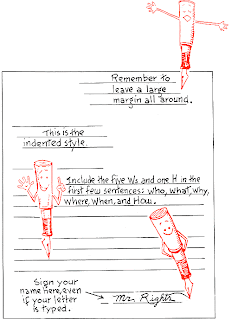 Remember to
leave a large
margin all around.
This is the
indented style.
Include the five Ws and one H in the
first few sentences: Who, What, Why,
Where, When, and How.
Sign your
name here, even
if your letter
is typed.
Mr. Right